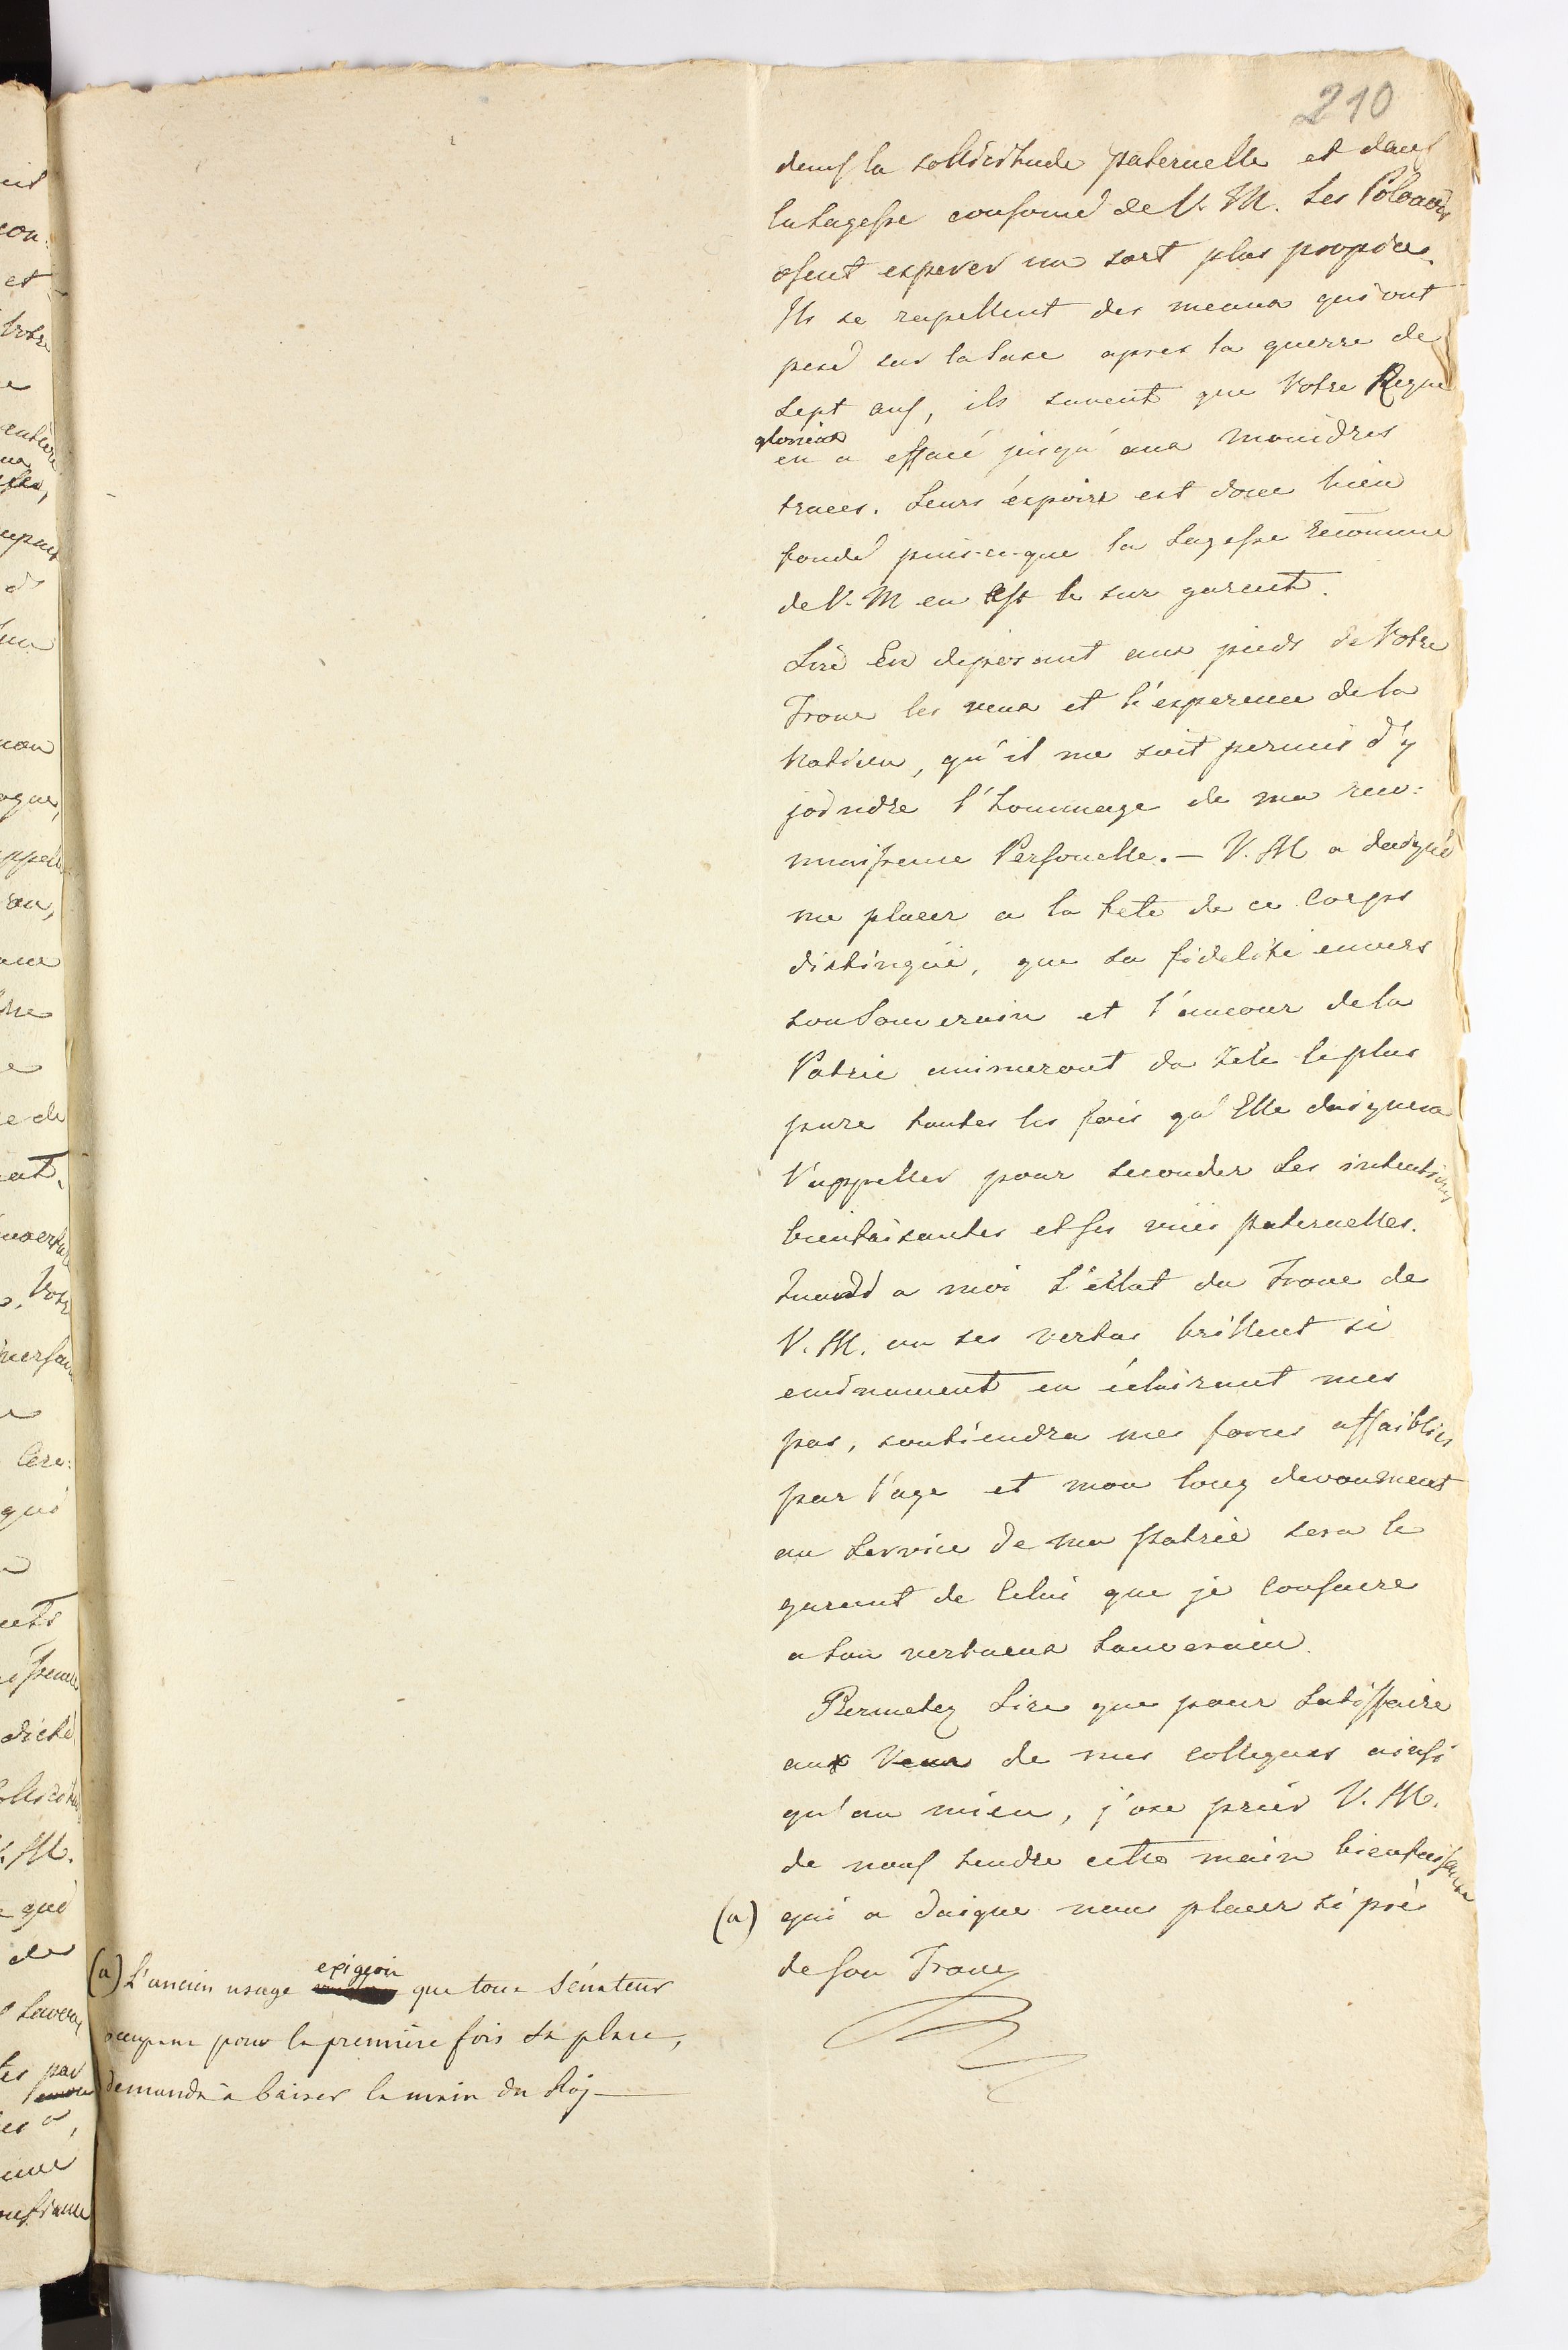 210
dans la sollicitude paternelle et dans
la sagesse consomé de V. M. Les Polonais
osent esperer un sort plus propice.
Ils se rapellent des meaux qui ont
pesé sur la Saxe apres la guerre de
sept ans, ils savent que Votre Regne
glorieux
en a effacé jusqu'aux moindres
traces. Leurs éspoirs est donc bien
fondé puis-ce-que la Sagesse reconnue
de V. M en est le sur garent.
Sire En deposant aux pieds de Votre
Trone les veux et l'esperence de la
Nation, qu'il me soit permis d'y
joindre l'hommage de ma recon:
naissence Personelle. — V. M a daigné
me placer a la tete de ce Corps
distingüé, que sa fidelité envers
son Souverain et l'amour de la
Patrie animeront du zele le plus
pure toutes les fois qu'Elle daignera
l'appeller pour seconder Ses intentions
bienfaisantes et ses vuës paternelles.
Quand a moi L'éclat du Trone de
V. M. ou ses vertus brillent si
eminament en éclairant mes
pas, soutiendra mes forces affaiblies
par l'age et mon long devoument
au Service de ma patrie sera le
garant de Celui que je Consacre
a Son vertueux Souverain.
Permetez Sire que pour Satisfaire
aux Veux de mes collegues ainsi
qu'au mien, j'ose prier V. M.
de nous tendre cette main bienfaisante
(a) qui a daigne nous placer si pré
de Son Trone
(a) L'ancien usage exigeoit que tout Sénateur
occupant pour la premiere fois sa place,
demanda à baiser la main du Roj —